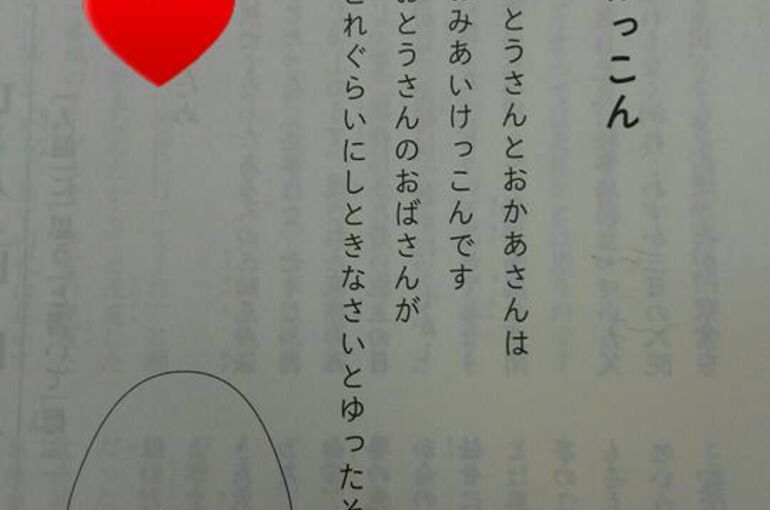 っこん
とうさんとおかあさんは
みあいけっこんです
おとうさんのおばさんが
れぐらいにしときなさいとゆったそ